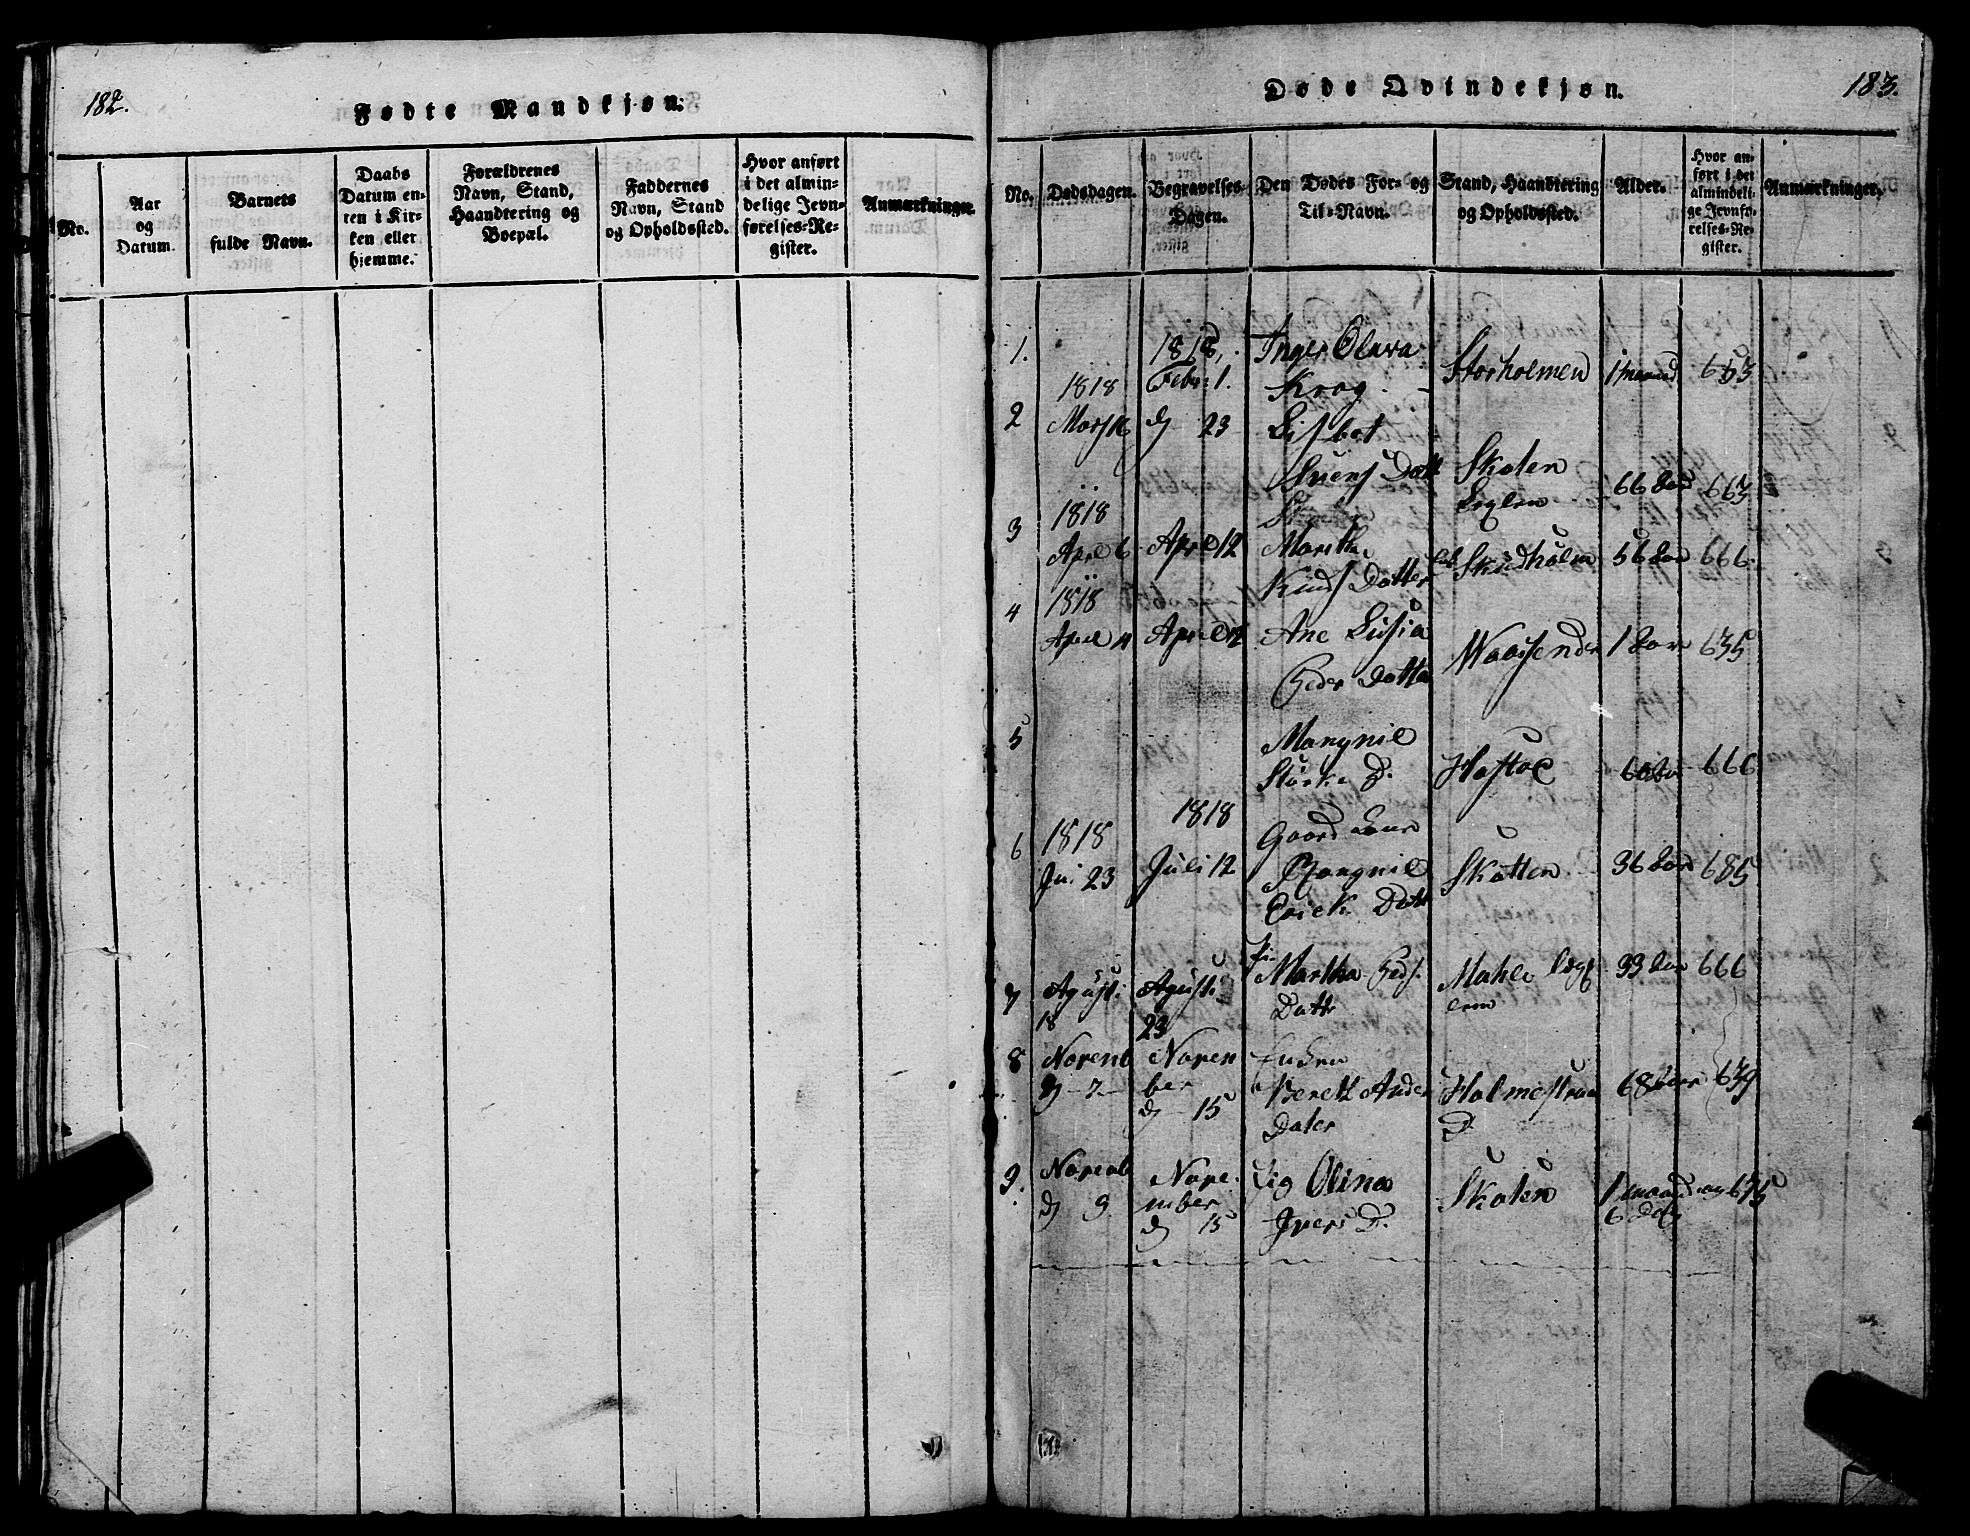 182.
Fødte Mandkjøn.
No.
Aar
og
Datum.
Barnets
fulde Navn.
Daabs
Datum en-
ten i Kir-
ken eller
hjemme.
Forældrenes
Navn, Stand,
Haandtering og
Boepæl.
Faddernes
Navn, Stand
og Opholdssted.
Hvor anført
i det almin-
delige Jevn-
førelses-Re-
gister.
Anmærkninger.
Døde Qvindekjøn.
183.
No.
Dødsdagen.
Begravelses-
Dagen.
Den Dødes For- og
Til-Navn.
Stand, Haandtering
og Opholdssted.
Alder.
Hvor an-
ført i det
almindeli-
ge Jevnfø-
relses-Re-
gister.
Anmærkninger.
1.
1818,
Febr: 1.
Inger Olava
Krog
Storholmen
1 maaned
653
2
1818
Mars 16
d 23
Lisbet
Suens Datt
Skoten
66 Aar
663
3
1818
April 6
April 12
Marithe
Knuds Datter
Skudholm
56 Aar
666
4
1818
April 11
April 12
Ane Lusia
Peder Datter
1 Aar
635
5
Mangnil
Størke D.
Hastoe
60 Aar
666
6
1818
Ju. 23
1818
Juli 12
Gaard
Mangnil
Erick Datt
Skotten
36 Aar
685
7
Agust:
18
Agust:
23
Martha Peds.
Datt
Mahle
33 Aar
666
8
Novemb
d 7
Noven
ber
d 15
Beret Ander
Dater
Holmestran
D
68 Aar
639
9.
Novemb
d 9
Nove-
mber
d 15
Olina
Ivers D.
Skoten
1 maaned og
6 Dag
675